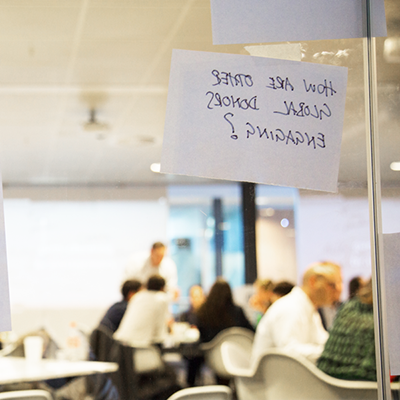 HOW ARE OTHER
GLOBAL DONORS
ENGAGING?